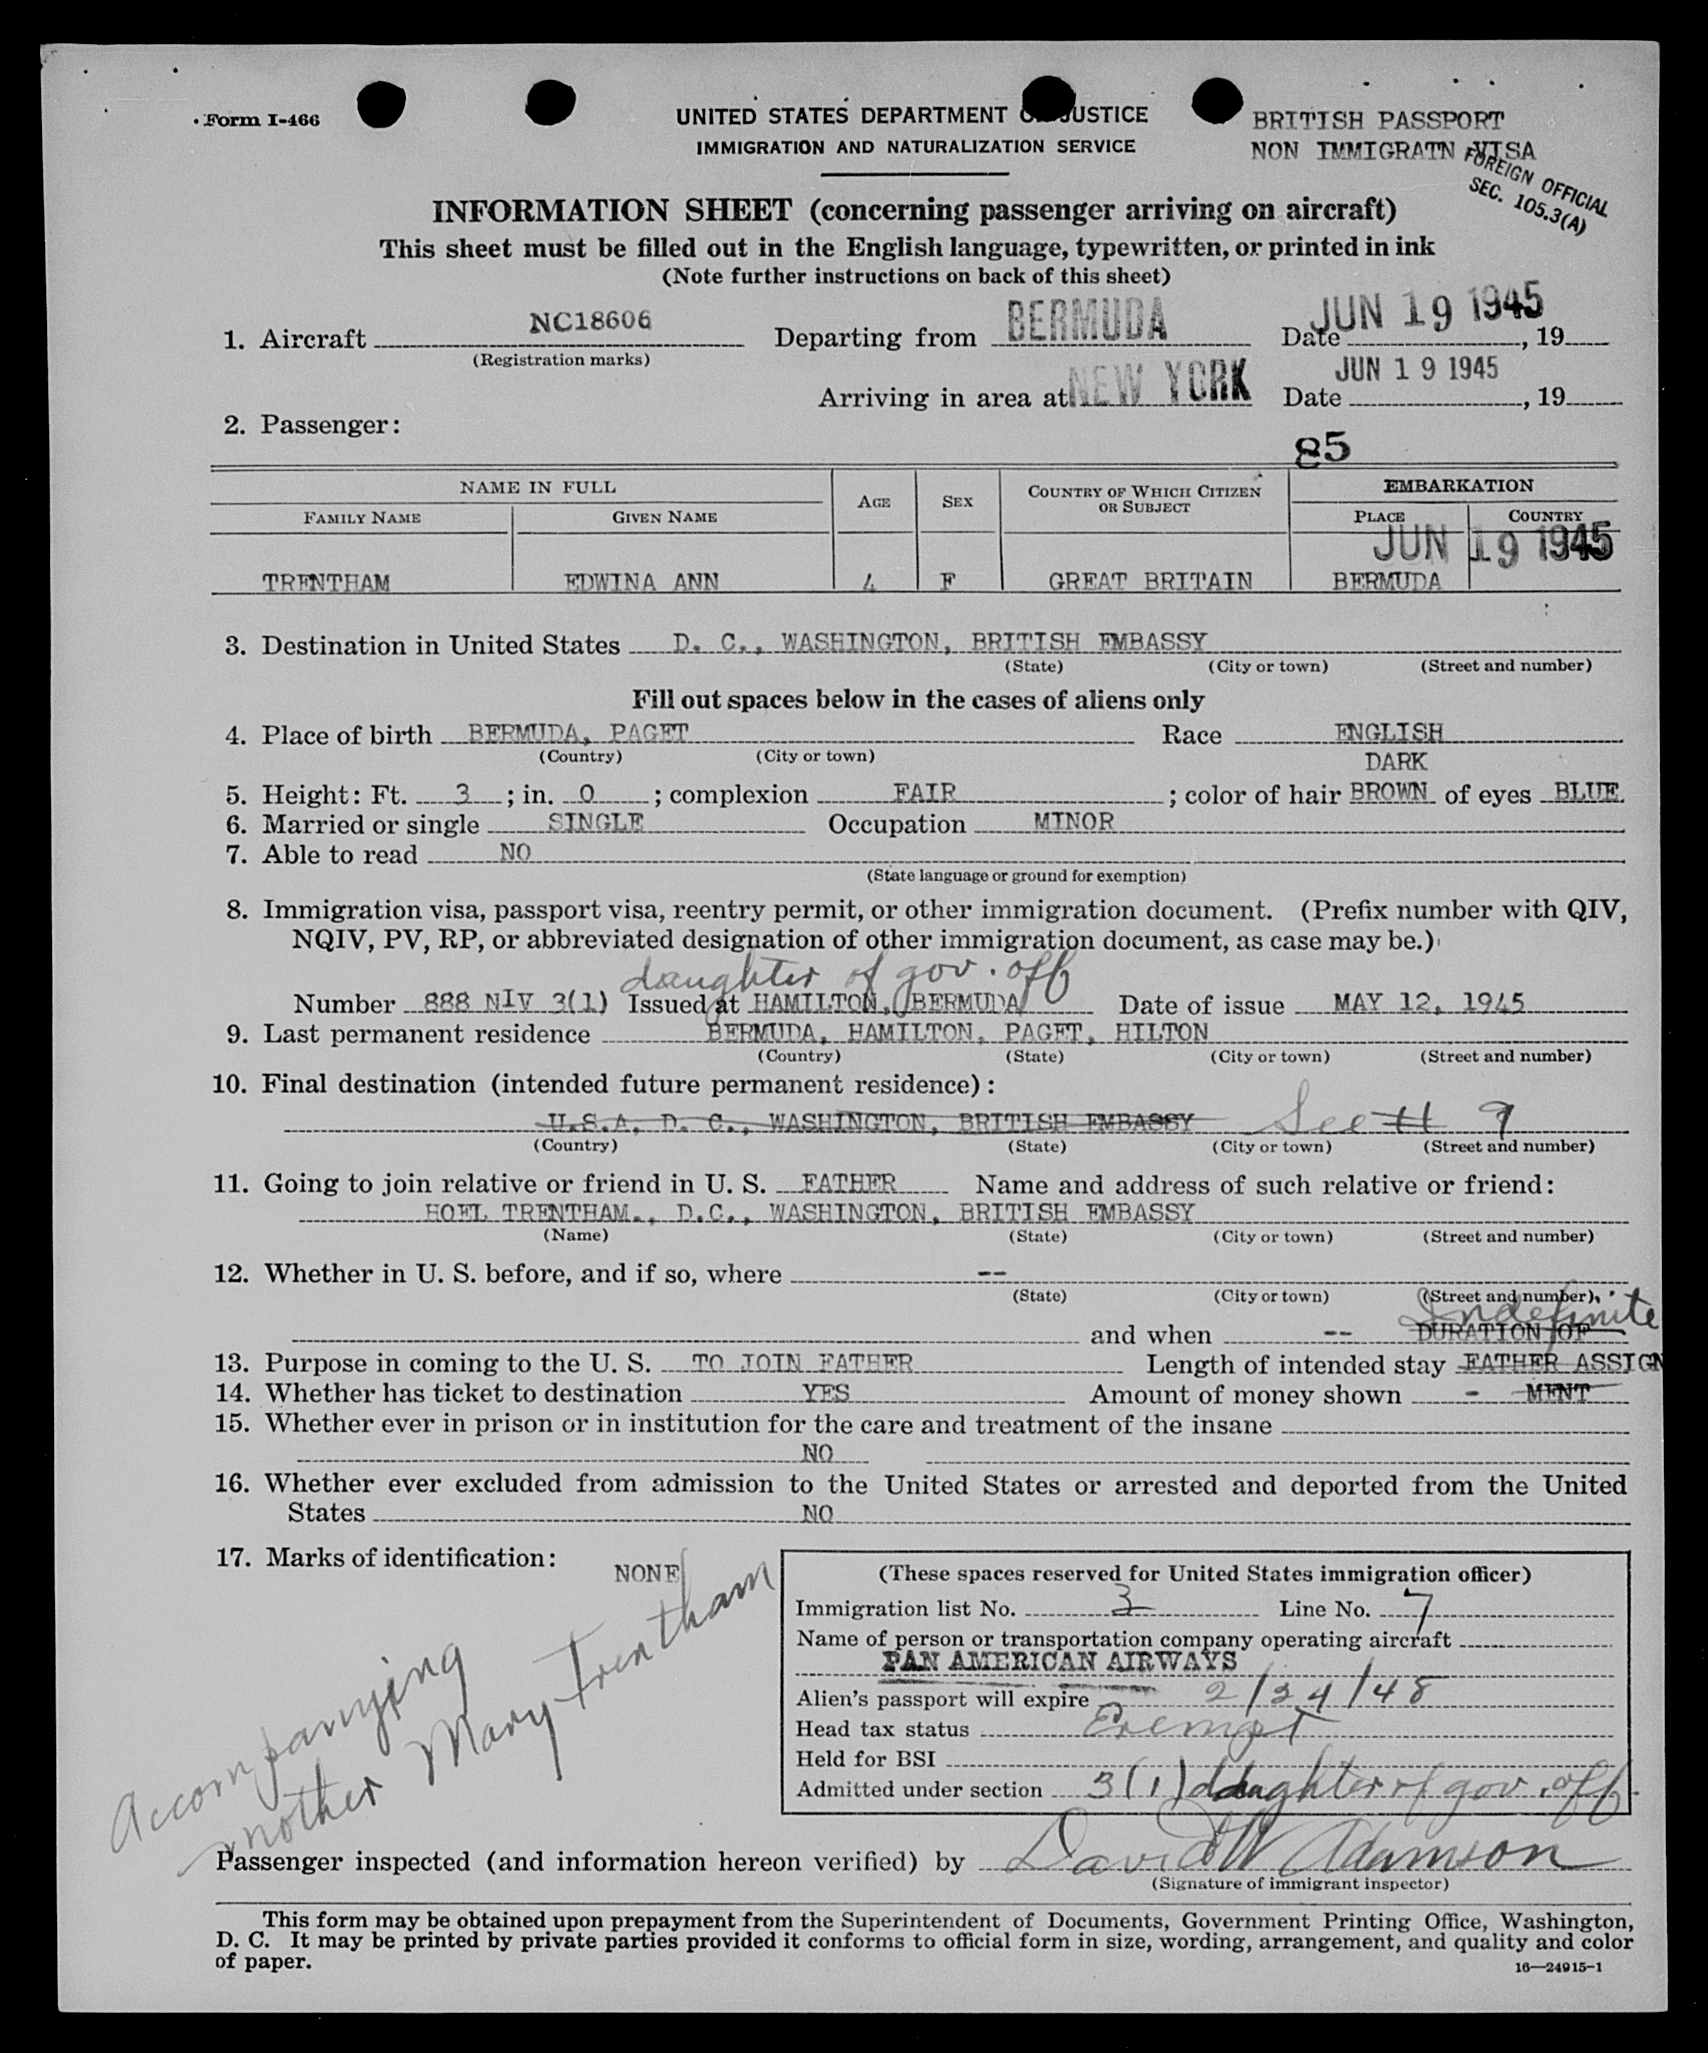 Form I-466
UNITED STATES DEPARTMENT OF JUSTICE
IMMIGRATION AND NATURALIZATION SERVICE
BRITISH PASSPORT
NON IMMIGRATN VISA
FOREIGN OFFICIAL
SEC. 105.3(A)
INFORMATION SHEET (concerning passenger arriving on aircraft)
This sheet must be filled out in the English language, typewritten, or printed in ink
(Note further instructions on back of this sheet)
1. Aircraft NC18606 Departing from BERMUDA Date JUN 19 1945, 19
(Registration marks)
Arriving in area at NEW YORK Date JUN 19 1945, 19
2. Passenger:
85
NAME IN FULL AGE SEX COUNTRY OF WHICH CITIZEN OR SUBJECT EMBARKATION
FAMILY NAME GIVEN NAME PLACE COUNTRY
JUN 19 1945
TRENTHAM EDWINA ANN 4 F GREAT BRITAIN BERMUDA
3. Destination in United States D. C., WASHINGTON, BRITISH EMBASSY
(State) (City or town) (Street and number)
Fill out spaces below in the cases of aliens only
4. Place of birth BERMUDA, PAGET Race ENGLISH
(Country) (City or town) DARK
5. Height: Ft. 3; in. 0; complexion FAIR; color of hair BROWN of eyes BLUE
6. Married or single SINGLE Occupation MINOR
7. Able to read NO
(State language or ground for exemption)
8. Immigration visa, passport visa, reentry permit, or other immigration document. (Prefix number with QIV,
NQIV, PV, RP, or abbreviated designation of other immigration document, as case may be.)
daughter of gov. off
Number 888 NIV 3(1) Issued at HAMILTON, BERMUDA Date of issue MAY 12, 1945
9. Last permanent residence BERMUDA, HAMILTON, PAGET, HILTON
(Country) (State) (City or town) (Street and number)
10. Final destination (intended future permanent residence):
U.S.A. D. C., WASHINGTON, BRITISH EMBASSY See # 9
(Country) (State) (City or town) (Street and number)
11. Going to join relative or friend in U. S. FATHER Name and address of such relative or friend:
HOEL TRENTHAM., D.C., WASHINGTON, BRITISH EMBASSY
(Name) (State) (City or town) (Street and number)
12. Whether in U. S. before, and if so, where --
(State) (City or town) (Street and number)
Indefinite
and when -- DURATION OF
13. Purpose in coming to the U. S. TO JOIN FATHER Length of intended stay FATHER ASSIGN
14. Whether has ticket to destination YES Amount of money shown - MENT
15. Whether ever in prison or in institution for the care and treatment of the insane
NO
16. Whether ever excluded from admission to the United States or arrested and deported from the United
States NO
17. Marks of identification: NONE
Accompanying
mother Mary Trentham
(These spaces reserved for United States immigration officer)
Immigration list No. 3 Line No. 7
Name of person or transportation company operating aircraft
PAN AMERICAN AIRWAYS
Alien's passport will expire 2/24/48
Head tax status Exempt
Held for BSI
Admitted under section 3(1) daughter of gov. off.
Passenger inspected (and information hereon verified) by David W Adamson
(Signature of immigrant inspector)
This form may be obtained upon prepayment from the Superintendent of Documents, Government Printing Office, Washington,
D. C. It may be printed by private parties provided it conforms to official form in size, wording, arrangement, and quality and color
of paper.
16—24915-1